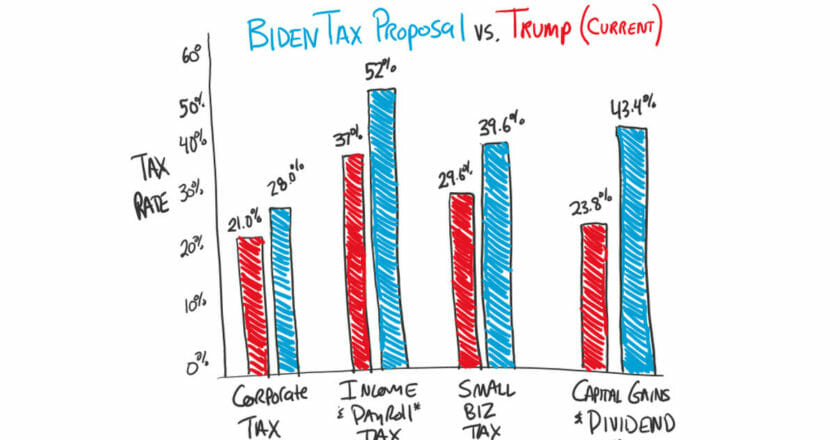 BIDEN TAX PROPOSAL VS. TRUMP (CURRENT)
60%
50%
40%
30%
20%
10%
0%
TAX
RATE
21.0%
28.0%
37%
52%
29.6%
39.6%
23.8%
43.4%
CORPORATE
TAX
INCOME
& PAYROLL*
TAX
SMALL
BIZ
TAX
CAPITAL GAINS
& DIVIDEND